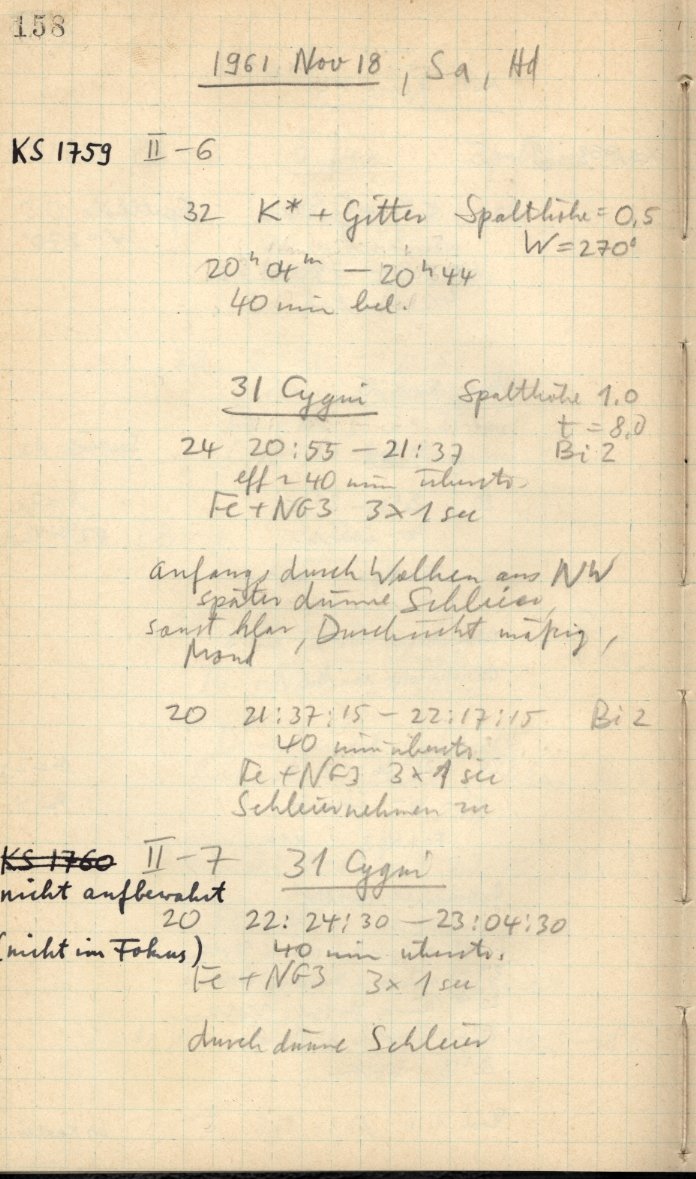 158
1961 Nov 18, Sa, Hd
KS 1759 II-6
32 K* + Gitter Spalthöhe = 0,5
W = 270°
20h 04m — 20h 44
40 min bel.
31 Cygni Spalthöhe 1.0
t = 8,0
24 20:55 — 21:37 Bi 2
eff ~ 40 min überstr.
Fe + NG3 3 x 1 sec
anfangs durch Wolken aus NW
später dünne Schleier,
sonst klar, Durchsicht mäßig,
Mond
20 21:37:15 — 22:17:15 Bi 2
40 min überstr.
Fe + NG3 3 x 1 sec
Schleier nehmen zu
KS 1760 II-7 31 Cygni
nicht aufbewahrt
20 22:24:30 — 23:04:30
(nicht im Fokus) 40 min überstr.
Fe + NG3 3 x 1 sec
durch dünne Schleier